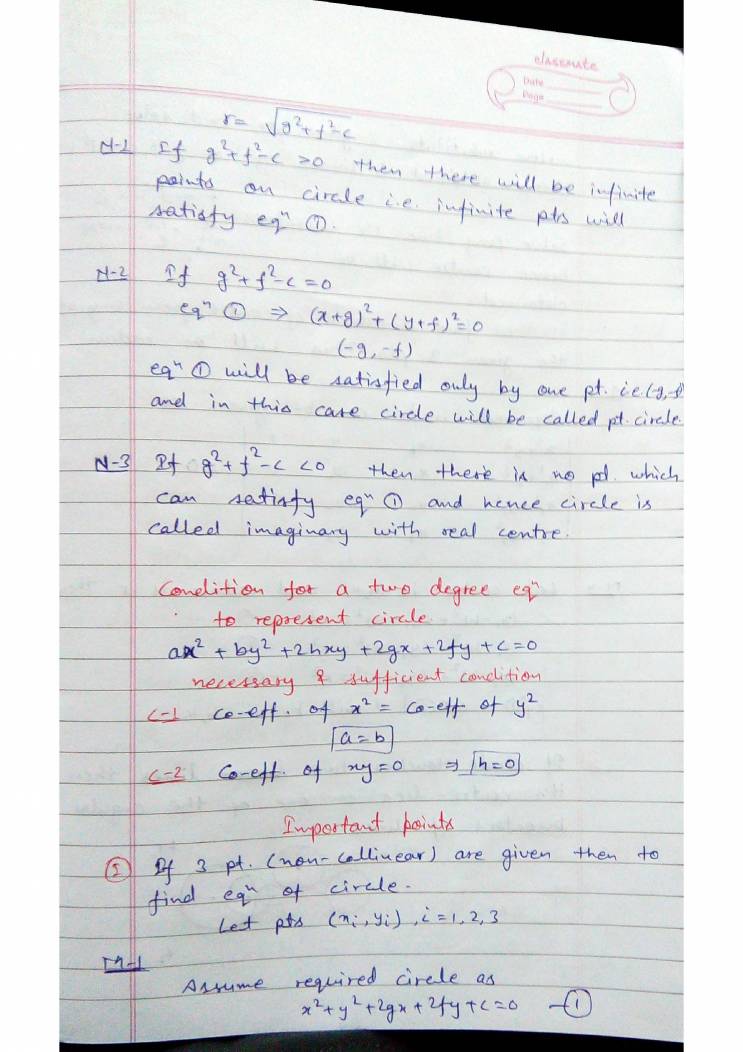 classmate
Date
Page
r = √g²+f²-c
N-1 If g²+f²-c >0 then there will be infinite
points on circle i.e. infinite pts will
satisfy eqⁿ ①.
N-2 If g²+f²-c =0
eqⁿ ① ⇒ (x+g)²+(y+f)²=0
(-g, -f)
eqⁿ ① will be satisfied only by one pt. i.e. (-g, -f)
and in this case circle will be called pt. circle.
N-3 If g²+f²-c <0 then there is no pt. which
can satisfy eqⁿ ① and hence circle is
called imaginary with real centre.
Condition for a two degree eqⁿ
to represent circle
ax² + by² +2hxy +2gx +2fy +c=0
necessary & sufficient condition
C-1 co-eff. of x² = co-eff of y²
a=b
C-2 Co-eff. of xy=0 ⇒ h=0
Important points
① If 3 pt. (non-collinear) are given then to
find eqⁿ of circle.
Let pts (xᵢ, yᵢ), i=1,2,3
M-1
Assume required circle as
x²+y²+2gx+2fy+c=0 —①